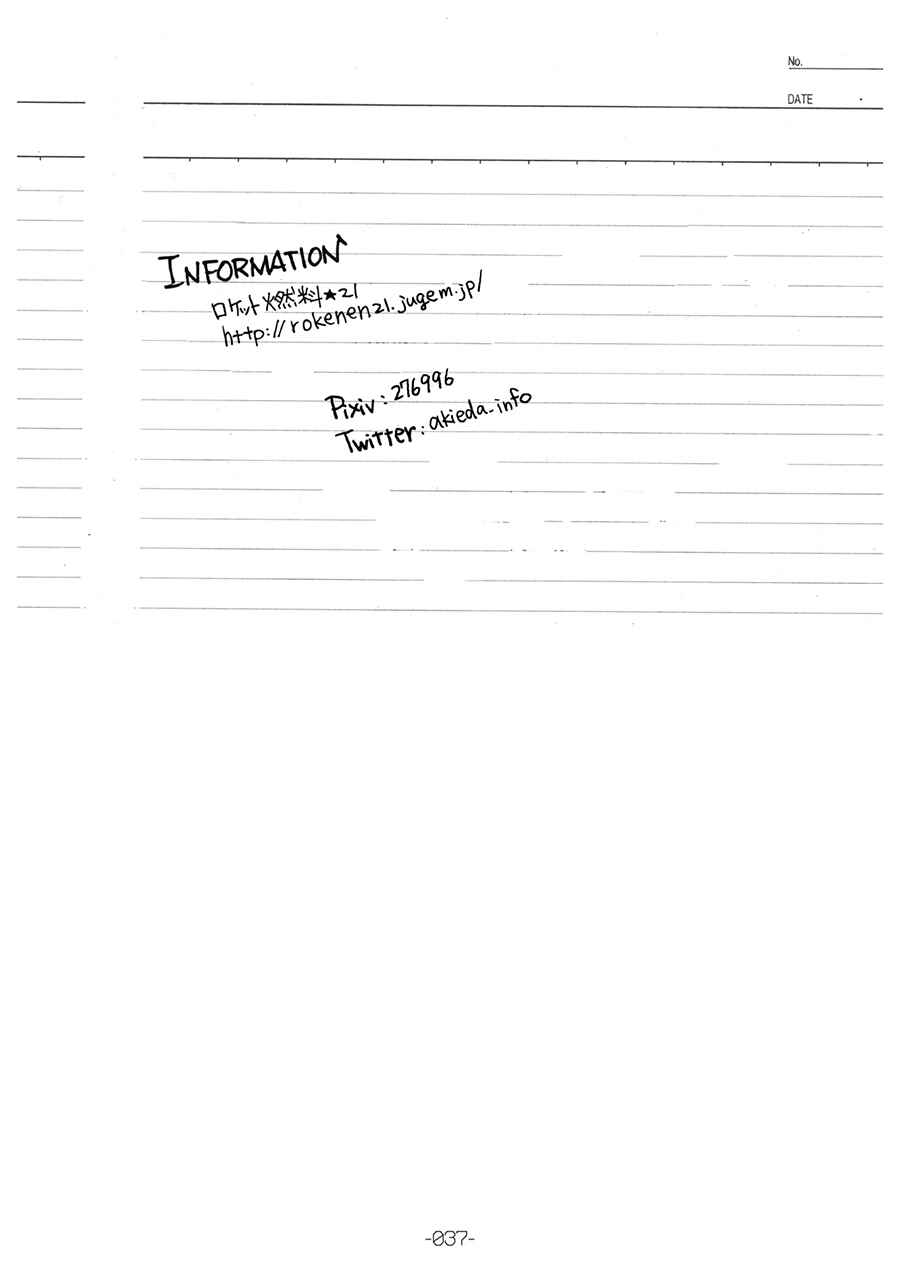 No.
DATE
INFORMATION
ロケット燃料★21
http://rokenen21.jugem.jp/
Pixiv:276996
Twitter:akieda_info
-037-